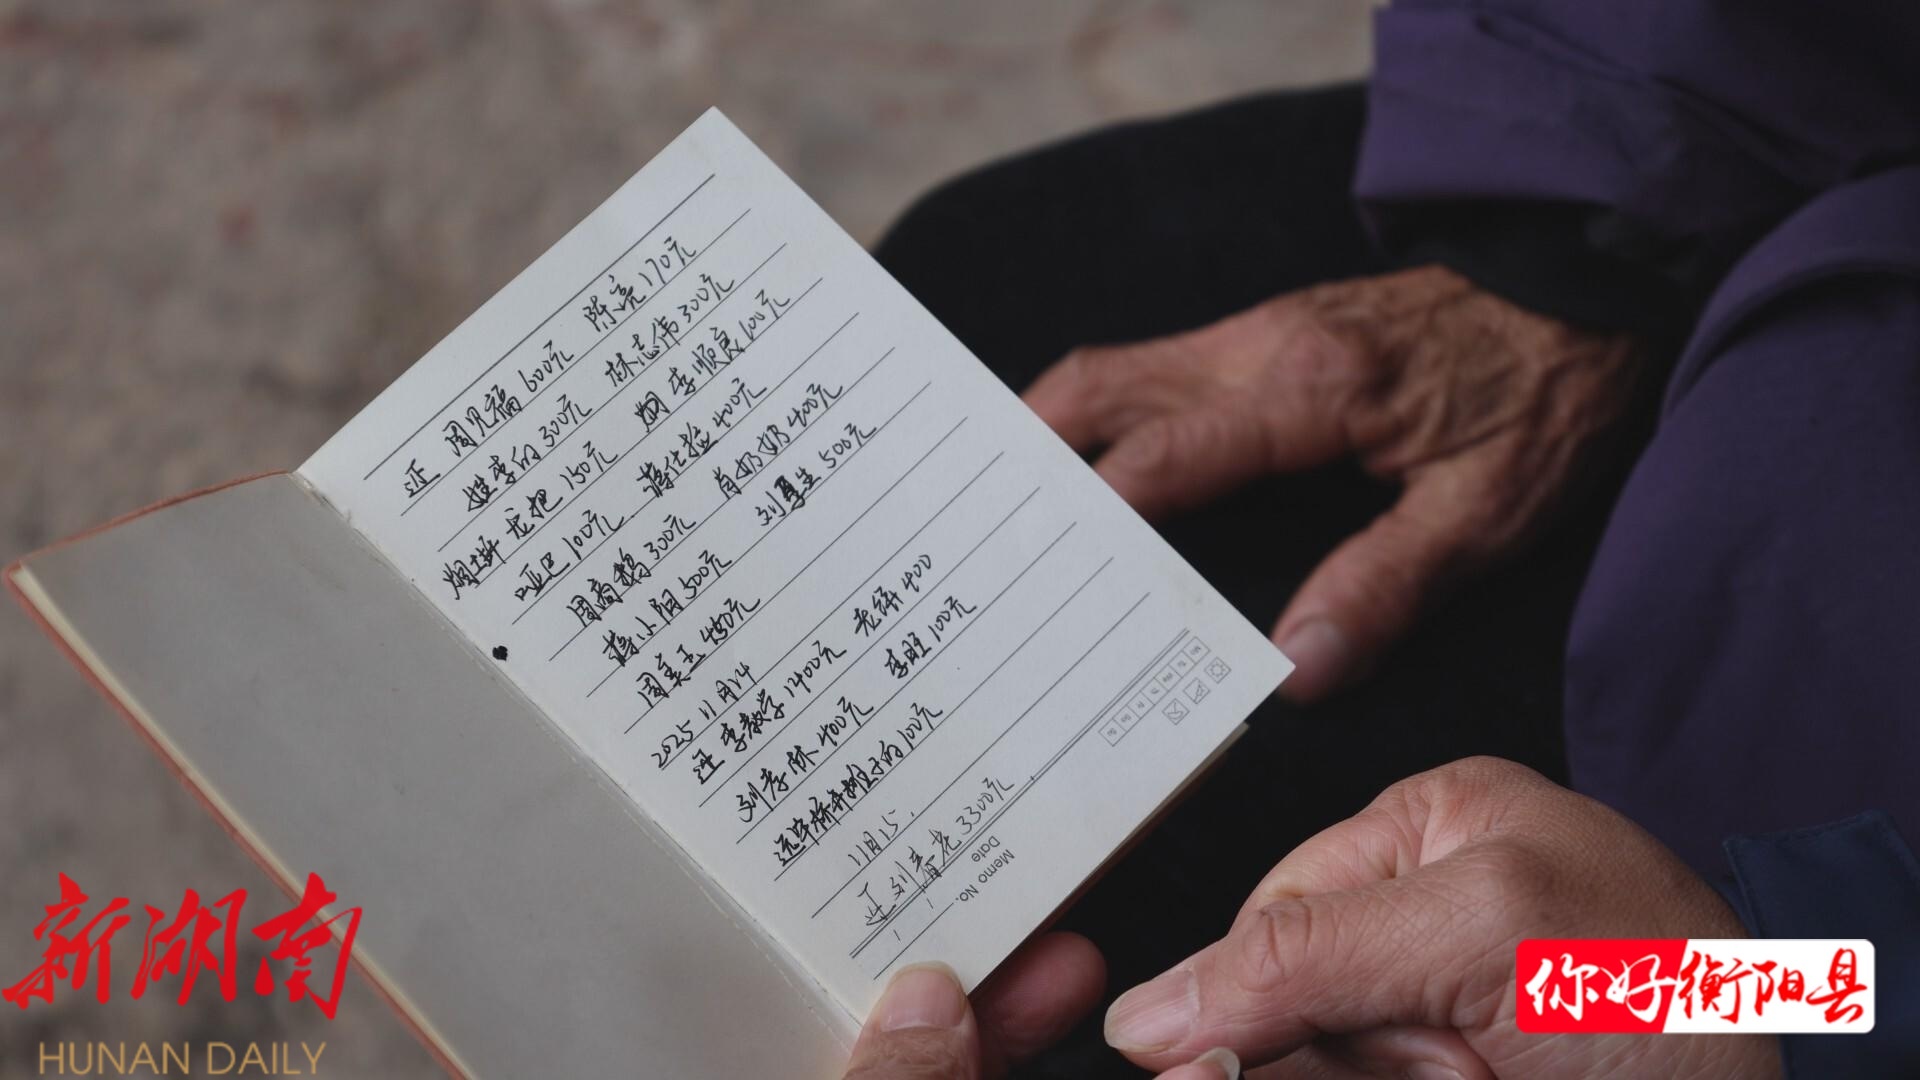 还 周见福600元 陈亮170元
姓李的300元 林志伟300元
龙把150元 李顺良100元
哑巴100元 蒋化 400元
周 鹅300元 肖奶奶400元
蒋小阳500元 刘 生500元
周美玉450元
2025 11月14
还 李教学1400元 老饼400
刘孝林400元 李旺100元
还 桥 的100元
11月15.
还刘 龙3300元
Memo No.
Date
Mo Tu We Th Fr Sa Su
新湖南
HUNAN DAILY
你好衡阳县